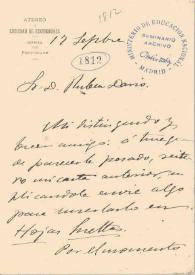 1812
ATENEO
DE
SOCIEDAD DE ESCRITORES
17 Septbre
1812
MINISTERIO DE EDUCACIÓN NACIONAL
SEMINARIO
ARCHIVO
MADRID
Sr. d. Rubén Darío.
Mi distinguido y
buen amigo: á riesgo
de parecerle pesado, reite
ro mi carta anterior, su
plicándole envíe algo
para insertarlo en
Hojas Sueltas.
Por el momento